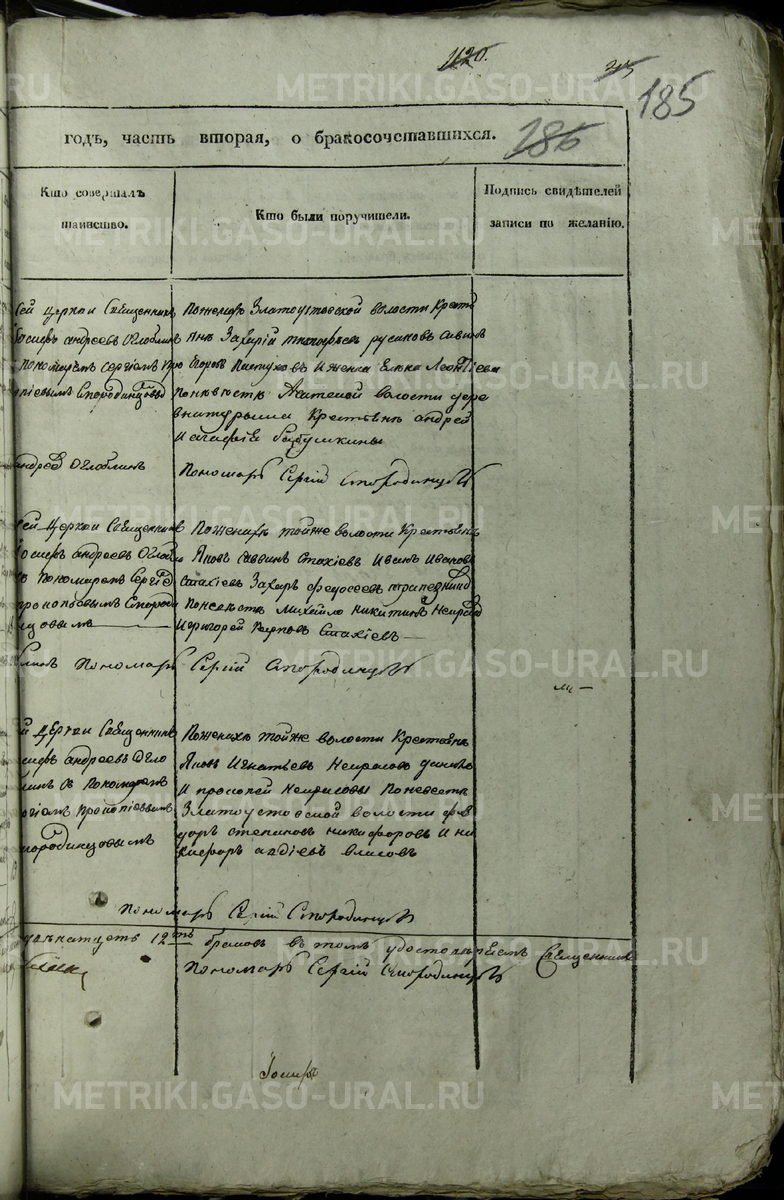 1120.
315
185
годъ, часть вторая, о бракосочетавшихся.
186
Кто совершалъ таинство.
Кто были поручители.
Подпись свидѣтелей записи по желанію.
сей церкви Священникъ
Іосифъ андреевъ Оглоблинъ
пономаремъ сергіемъ Про
копіевымъ Смородинцовы
По женихѣ Златоустовской волости Крестья
нинъ Захарій русиновъ
Егоръ Пастуховъ
волости дере
вни Крестьянъ андрей
и агафiй Бабушкины
андрей Оглоблинъ
Пономарь Сергій Смородинцовъ
сей Церкви Священникъ
Іосифъ андреевъ Огло
съ Пономаремъ Сергіе
прокопьевымъ Смороди
нцовымъ
По женихѣ тойже волости Крестьянъ
Яковъ саввинъ Стахіевъ Иванъ Ивановъ
Стахіевъ Захаръ федосеевъ
По невѣстѣ михайло никитинъ
и григорей Карповъ Стахіевъ
Пономарь Сергій Смородинцовъ
ей Церкви Священникъ
осифъ андреевъ Огло
блинъ съ Пономаремъ
Прокопіевымъ
мородинцовымъ
По женихѣ тойже волости Крестьянъ
Яковъ Игнатьевъ Некрасовъ
и прокопей Некрасовы По невестѣ
Златоустовской волости фе
доръ степановъ никифоровъ и ни
кифоръ авдіевъ власовъ
Пономарь Сергій Смородинцовъ
12ть браковъ в томъ удостовѣряемъ Священникъ
Пономарь Сергій Смородинцовъ
Іосифъ
METRIKI.GASO-URAL.RU